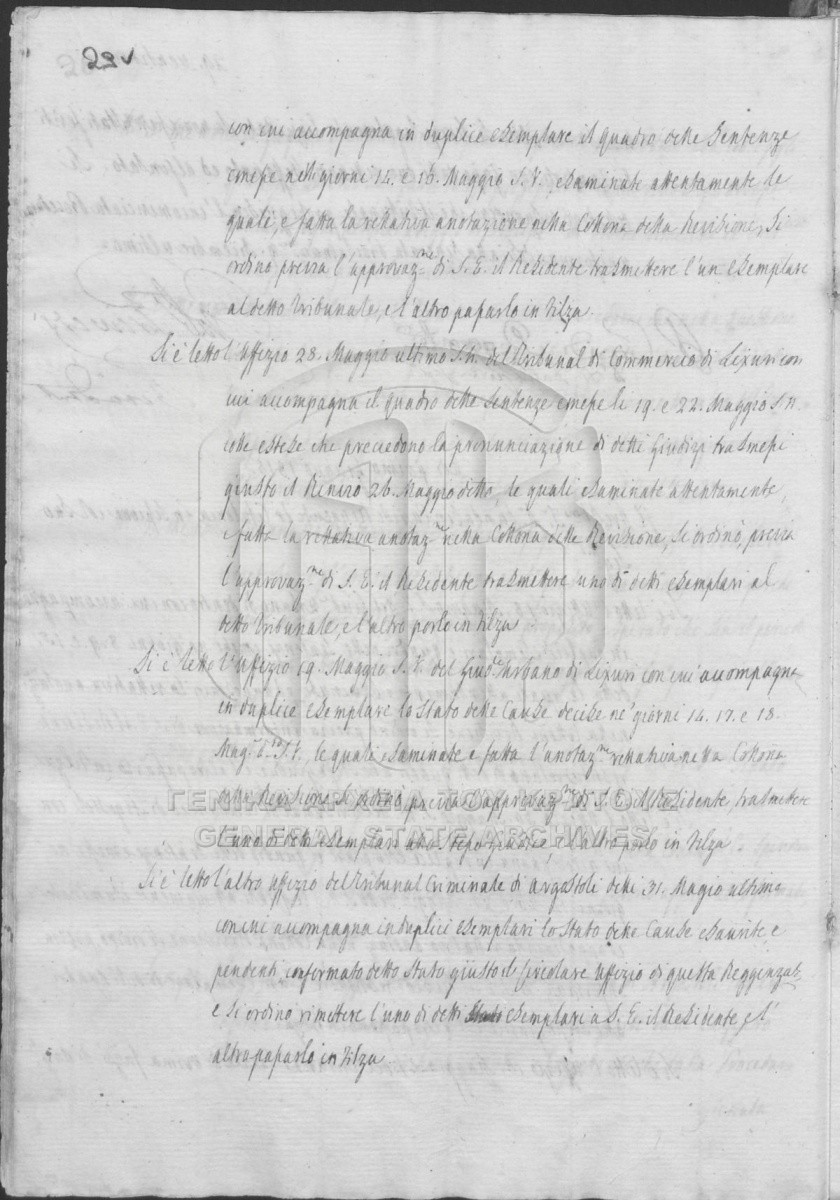 29v
con cui accompagna in duplice esemplare il quadro delle Sentenze
emesse nelli giorni 14. e 16. Maggio S.V., esaminate attentamente le
quali, e fatta la rellativa anotazione nella Collona della Revisione, Si
ordinò previa l'approvaz.ne di S. E. il Residente trasmettere l'un esemplare
al detto Tribunale, e l'altro passarlo in Filza
Si è letto l'Uffizio 28. Maggio ultimo S.N. del Tribunal di Commercio di Lixuri con
cui accompagna il quadro delle Sentenze emesse li 19. e 22. Maggio S.N.
colle estese che preciedono la pronunciazione di detti Giudizj trasmessi
giusto il 26. Maggio detto, le quali esaminate attentamente,
e fatta la rellativa anotaz.ne nella Collona delle Revisione, Si ordinò, previa
l'approvaz.ne di S. E. il Residente trasmettere uno di detti esemplari al
detto Tribunale, e l'altro porlo in Filza
Si è letto l'Uffizio 19. Maggio S.V. del Giud.e Urbano di Lixuri con cui accompagna
in duplice esemplare lo Stato delle Cause decise ne' giorni 14. 17. e 18.
Mag.o S.V. le quali esaminate e fatta l'anotaz.ne rellativa nella Collona
della Revisione Si ordinò previa l'approvaz.ne di S. E. il Residente, trasmettere
l'uno di detti esemplari allo stesso Giudice, e l'altro porlo in Filza.
Si è letto l'altro Uffizio del Tribunal Criminale di Argostoli delli 31. Magio ultimo
con cui accompagna in duplici esemplari lo Stato delle Cause esaurite, e
pendenti, conformato detto Stato giusto il Circolare Uffizio di questa Reggenza
e Si ordinò rimettere l'uno di detti esemplari a S. E. il Residente, e l'
altro passarlo in Filza
ΓΕΝΙΚΑ ΑΡΧΕΙΑ ΤΟΥ ΚΡΑΤΟΥΣ
GENERAL STATE ARCHIVES